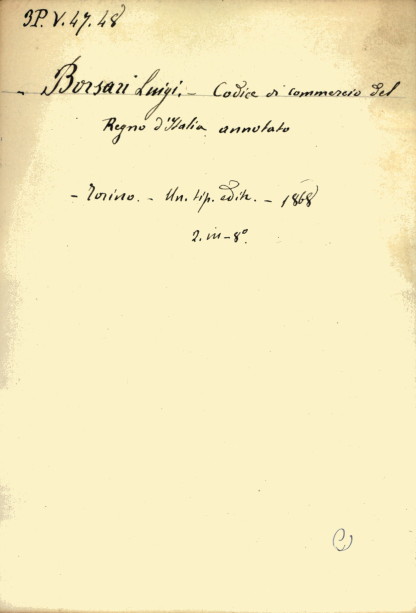 3P. V. 47. 48
- Borsari Luigi. - Codice di commercio del
Regno d'Italia annotato
- Torino. - Un. tip. edit. - 1868
2. in-8°.